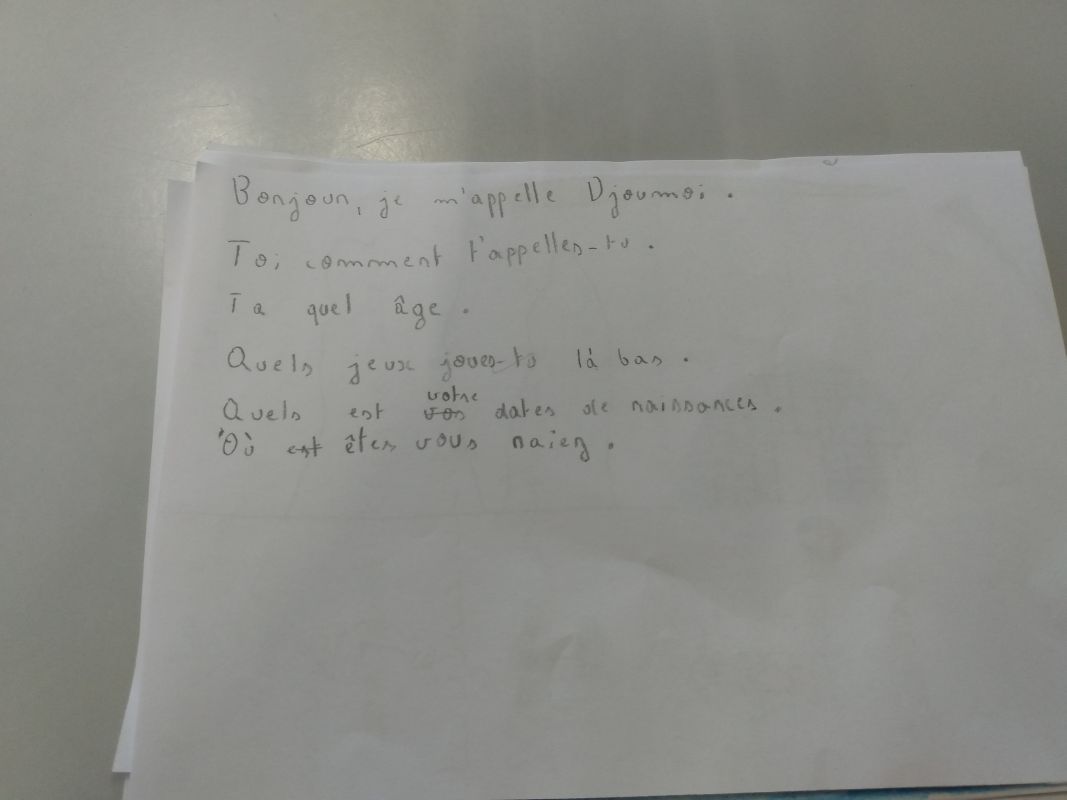 Bonjour, je m'appelle Djoumoi.
Toi comment t'appelles-tu.
Ta quel âge.
Quels jeux joues-tu là bas.
Quels est votre dates de naissances.
Où êtes vous naiez.